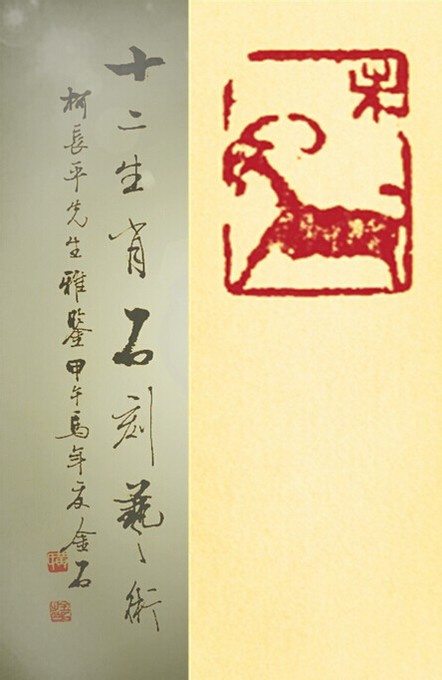 十二生肖石刻藝術
柯長平先生雅鑒甲午馬年夏金石
柯